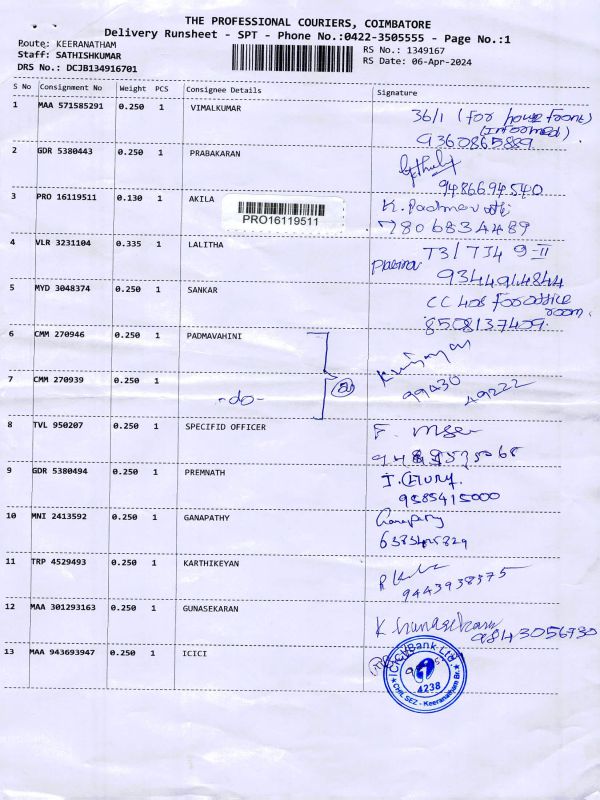 THE PROFESSIONAL COURIERS, COIMBATORE
Delivery Runsheet - SPT - Phone No.:0422-3505555 - Page No.:1
Route: KEERANATHAM
RS No.: 1349167
Staff: SATHISHKUMAR
RS Date: 06-Apr-2024
DRS No.: DCJB134916701
S No Consignment No Weight PCS Consignee Details Signature
1 MAA 571585291 0.250 1 VIMALKUMAR 36/1 (For house front)
(Informed)
9360865889
2 GDR 5380443 0.250 1 PRABAKARAN
9486694540
3 PRO 16119511 0.130 1 AKILA K. Padmavathi
PRO16119511
7806834489
4 VLR 3231104 0.335 1 LALITHA T3/TJ4 9-II
9344914844
5 MYD 3048374 0.250 1 SANKAR CC 408 For office
room.
8508137409.
6 CMM 270946 0.250 1 PADMAVAHINI
7 CMM 270939 0.250 1 -do- 99430 49222
8 TVL 950207 0.250 1 SPECIFID OFFICER
9 GDR 5380494 0.250 1 PREMNATH
9585415000
10 MNI 2413592 0.250 1 GANAPATHY Ganapathy
11 TRP 4529493 0.250 1 KARTHIKEYAN
9443938375
12 MAA 301293163 0.250 1 GUNASEKARAN K Gunasekaran
9843056730
13 MAA 943693947 0.250 1 ICICI
ICICI Bank Ltd.
4238
CHIL SEZ - Keeranatham Br.